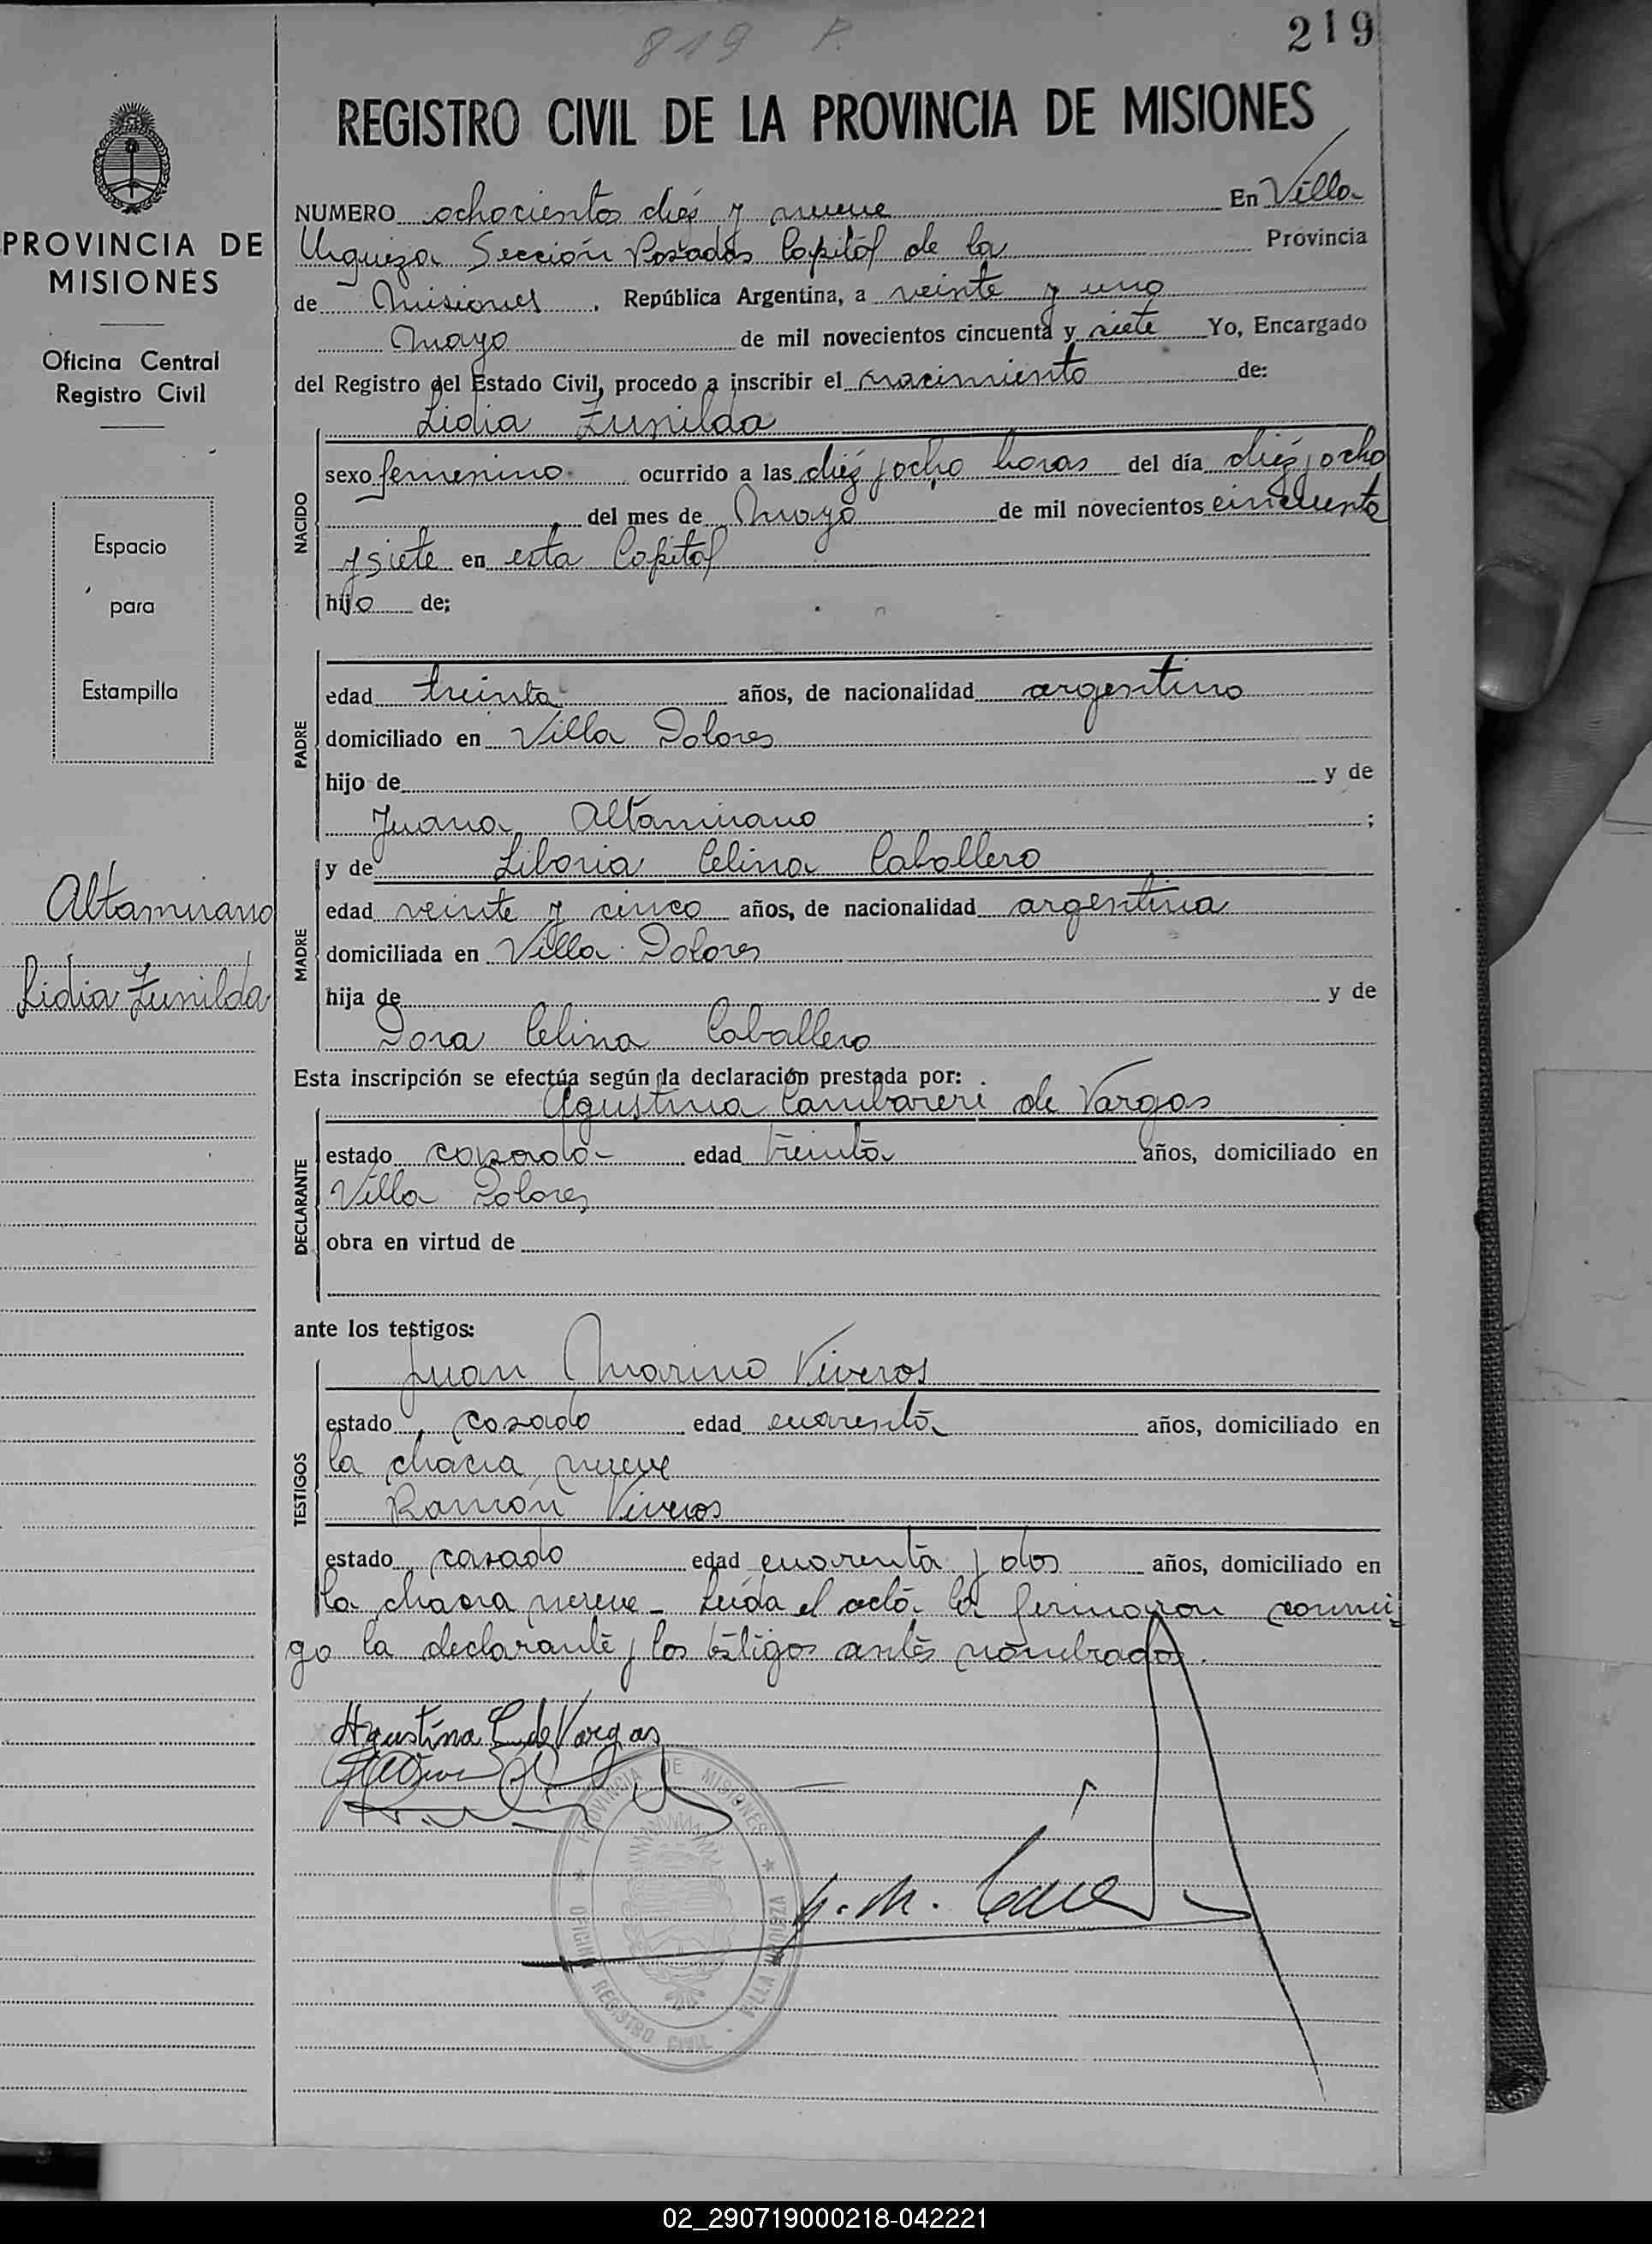 819 P.
219
REGISTRO CIVIL DE LA PROVINCIA DE MISIONES
PROVINCIA DE
MISIONES
Oficina Central
Registro Civil
Espacio
para
Estampilla
Altamirano
Lidia Zunilda
NUMERO ochocientos dies y nueve En Villa
Urquiza Sección Posadas Capital de la Provincia
de Misiones, República Argentina, a veinte y uno
Mayo de mil novecientos cincuenta y siete Yo, Encargado
del Registro del Estado Civil, procedo a inscribir el nacimiento de:
NACIDO
Lidia Zunilda
sexo femenino ocurrido a las diéz y ocho horas del día diéz y ocho
del mes de Mayo de mil novecientos cincuenta
y siete en esta Capital
hijo de;
PADRE
edad treinta años, de nacionalidad argentino
domiciliado en Villa Dolores
hijo de y de
Juana Altamirano ;
y de Liboria Celina Caballero
MADRE
edad veinte y cinco años, de nacionalidad argentina
domiciliada en Villa Dolores
hija de y de
Dora Celina Caballero
Esta inscripción se efectúa según la declaración prestada por:
DECLARANTE
Agustina Cambareri de Vargas
estado casada edad treinta años, domiciliado en
Villa Dolores
obra en virtud de
ante los testigos:
TESTIGOS
Juan Marino Viveros
estado casado edad cuarenta años, domiciliado en
la chacra nueve
Ramón Viveros
estado casado edad cuarenta y dos años, domiciliado en
la chacra nueve - Leída el acta la firmaron conmi
go la declarante y los testigos antes nombrados.
Agustina C. de Vargas
PROVINCIA DE MISIONES
OFICINA REGISTRO CIVIL - VILLA URQUIZA
02_290719000218-042221